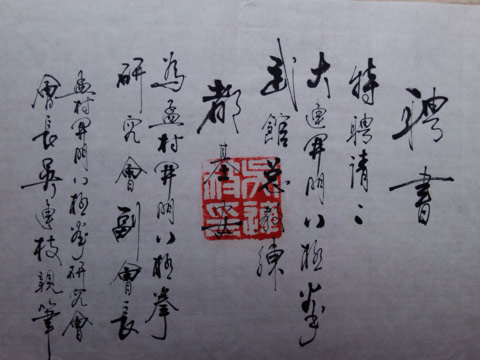 聘書
特聘請：
大連開門八極拳
武館总教練
都基
為孟村開門八極拳
研究會副會長
孟村開門八極拳研究會
會長吳連枝親筆